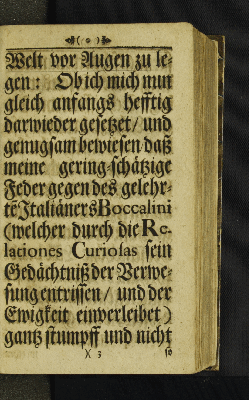 (o)
Welt vor Augen zu le-
gen: Ob ich mich nun
gleich anfangs hefftig
darwieder gesetzet/ und
genugsam bewiesen daß
meine gering-schätzige
Feder gegen des gelehr-
te Italiäners Boccalini
(welcher durch die Re-
lationes Curiosas sein
Gedächtniß der Verwe-
sung entrissen/ und der
Ewigkeit einverleibet)
gantz stumpff und nicht
)( 3 so